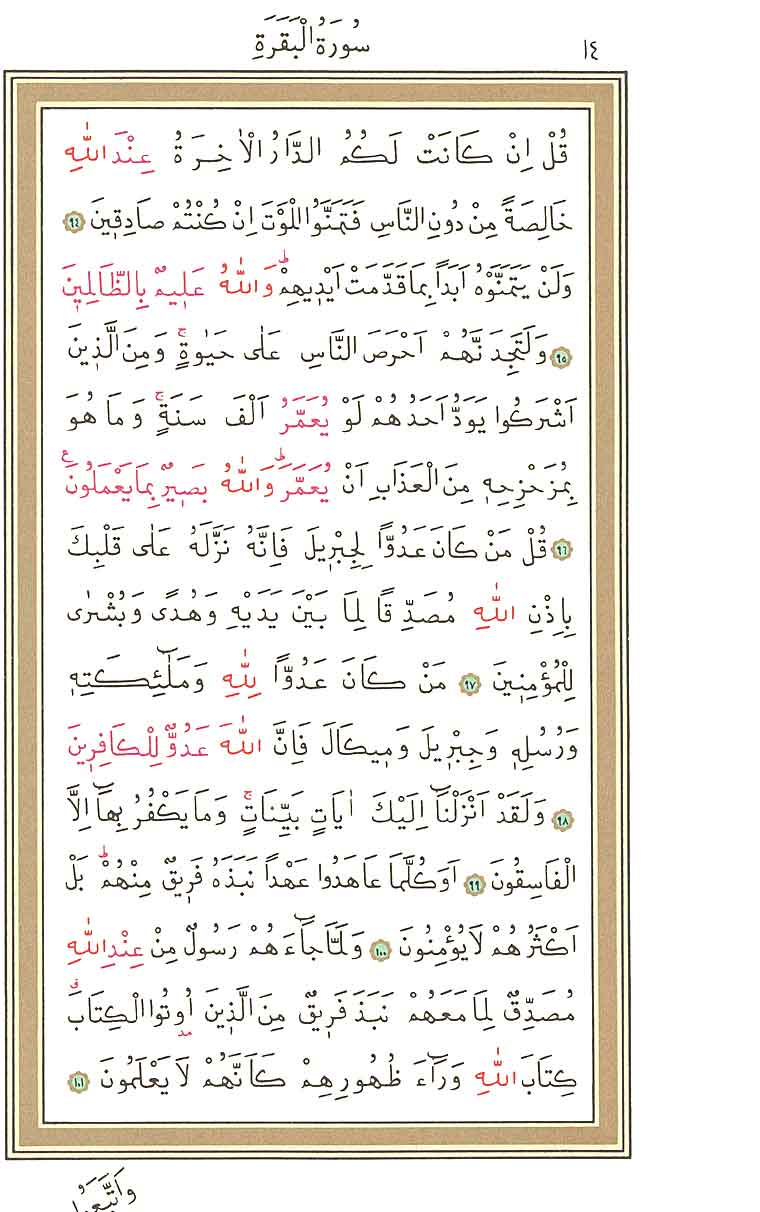 ١٤ سُورَةُ الْبَقَرَةِ
قُلْ اِنْ كَانَتْ لَكُمُ الدَّارُ الْاٰخِرَةُ عِنْدَ اللّٰهِ
خَالِصَةً مِنْ دُونِ النَّاسِ فَتَمَنَّوُا الْمَوْتَ اِنْ كُنْتُمْ صَادِقٖينَ ٩٤
وَلَنْ يَتَمَنَّوْهُ اَبَداً بِمَا قَدَّمَتْ اَيْدٖيهِمْؕ وَاللّٰهُ عَلٖيمٌ بِالظَّالِمٖينَ
٩٥ وَلَتَجِدَنَّهُمْ اَحْرَصَ النَّاسِ عَلٰى حَيٰوةٍۚ وَمِنَ الَّذٖينَ
اَشْرَكُوا يَوَدُّ اَحَدُهُمْ لَوْ يُعَمَّرُ اَلْفَ سَنَةٍۚ وَمَا هُوَ
بِمُزَحْزِحِهٖ مِنَ الْعَذَابِ اَنْ يُعَمَّرَؕ وَاللّٰهُ بَصٖيرٌ بِمَا يَعْمَلُونَ ع
٩٦ قُلْ مَنْ كَانَ عَدُوًّا لِجِبْرٖيلَ فَاِنَّهُ نَزَّلَهُ عَلٰى قَلْبِكَ
بِاِذْنِ اللّٰهِ مُصَدِّقًا لِمَا بَيْنَ يَدَيْهِ وَهُدًى وَبُشْرٰى
لِلْمُؤْمِنٖينَ ٩٧ مَنْ كَانَ عَدُوًّا لِلّٰهِ وَمَلٰٓئِكَتِهٖ
وَرُسُلِهٖ وَجِبْرٖيلَ وَمٖيكَالَ فَاِنَّ اللّٰهَ عَدُوٌّ لِلْكَافِرٖينَ
٩٨ وَلَقَدْ اَنْزَلْنَٓا اِلَيْكَ اٰيَاتٍ بَيِّنَاتٍۚ وَمَا يَكْفُرُ بِهَٓا اِلَّا
الْفَاسِقُونَ ٩٩ اَوَكُلَّمَا عَاهَدُوا عَهْداً نَبَذَهُ فَرٖيقٌ مِنْهُمْؕ بَلْ
اَكْثَرُهُمْ لَا يُؤْمِنُونَ ١٠٠ وَلَمَّا جَٓاءَهُمْ رَسُولٌ مِنْ عِنْدِ اللّٰهِ
مُصَدِّقٌ لِمَا مَعَهُمْ نَبَذَ فَرٖيقٌ مِنَ الَّذٖينَ اُوتُوا الْكِتَابَۗ
كِتَابَ اللّٰهِ وَرَٓاءَ ظُهُورِهِمْ كَاَنَّهُمْ لَا يَعْلَمُونَ ١٠١
وَاتَّبَعُوا